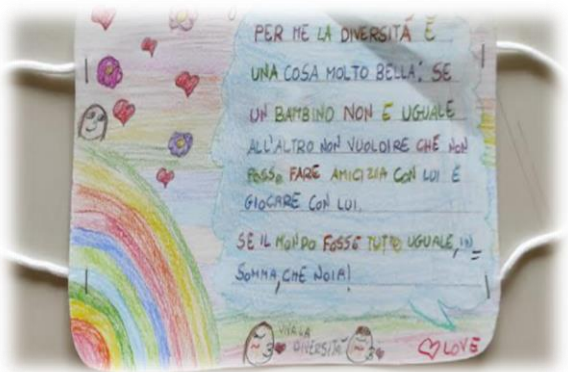 PER ME LA DIVERSITÁ É
UNA COSA MOLTO BELLA: SE
UN BAMBINO NON É UGUALE
ALL'ALTRO NON VUOLDIRE CHE NON
POSSO FARE AMICIZIA CON LUI E
GIOCARE CON LUI.
SE IL MONDO FOSSE TUTTO UGUALE, IN=
SOMMA, CHE NOIA!
VIVA LA
DIVERSITÁ
LOVE